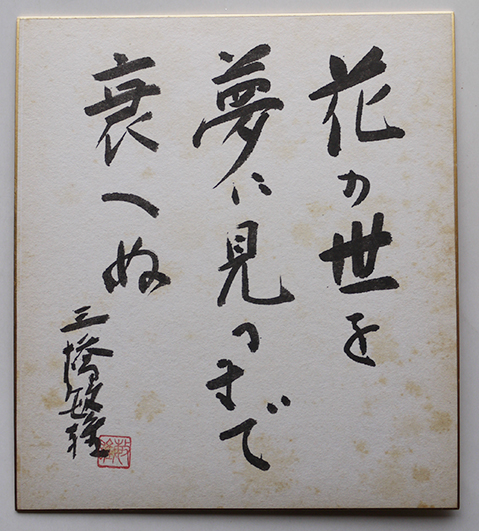 花の世を
夢に見つまで
衰へぬ
三橋敏雄
敏雄